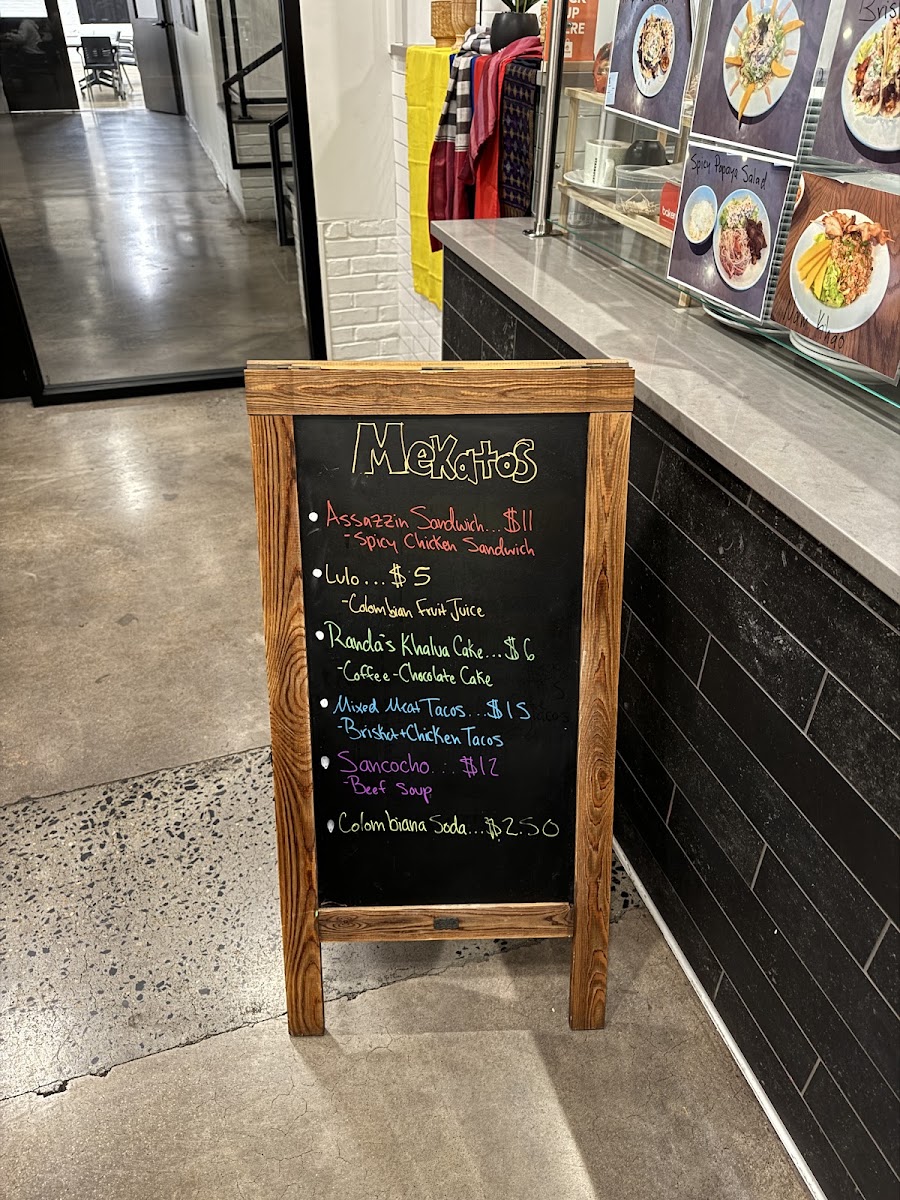 UP
ERE
Bris
Spicy Papaya Salad
bake
Nam Khao
Mekatos
Assazzin Sandwich...$11
-Spicy Chicken Sandwich
Lulo...$5
-Colombian Fruit Juice
Randa's Khalua Cake...$6
-Coffee-Chocolate Cake
Mixed Meat Tacos...$15
-Brisket+Chicken Tacos
Sancocho...$12
-Beef Soup
Colombiana Soda...$2.50